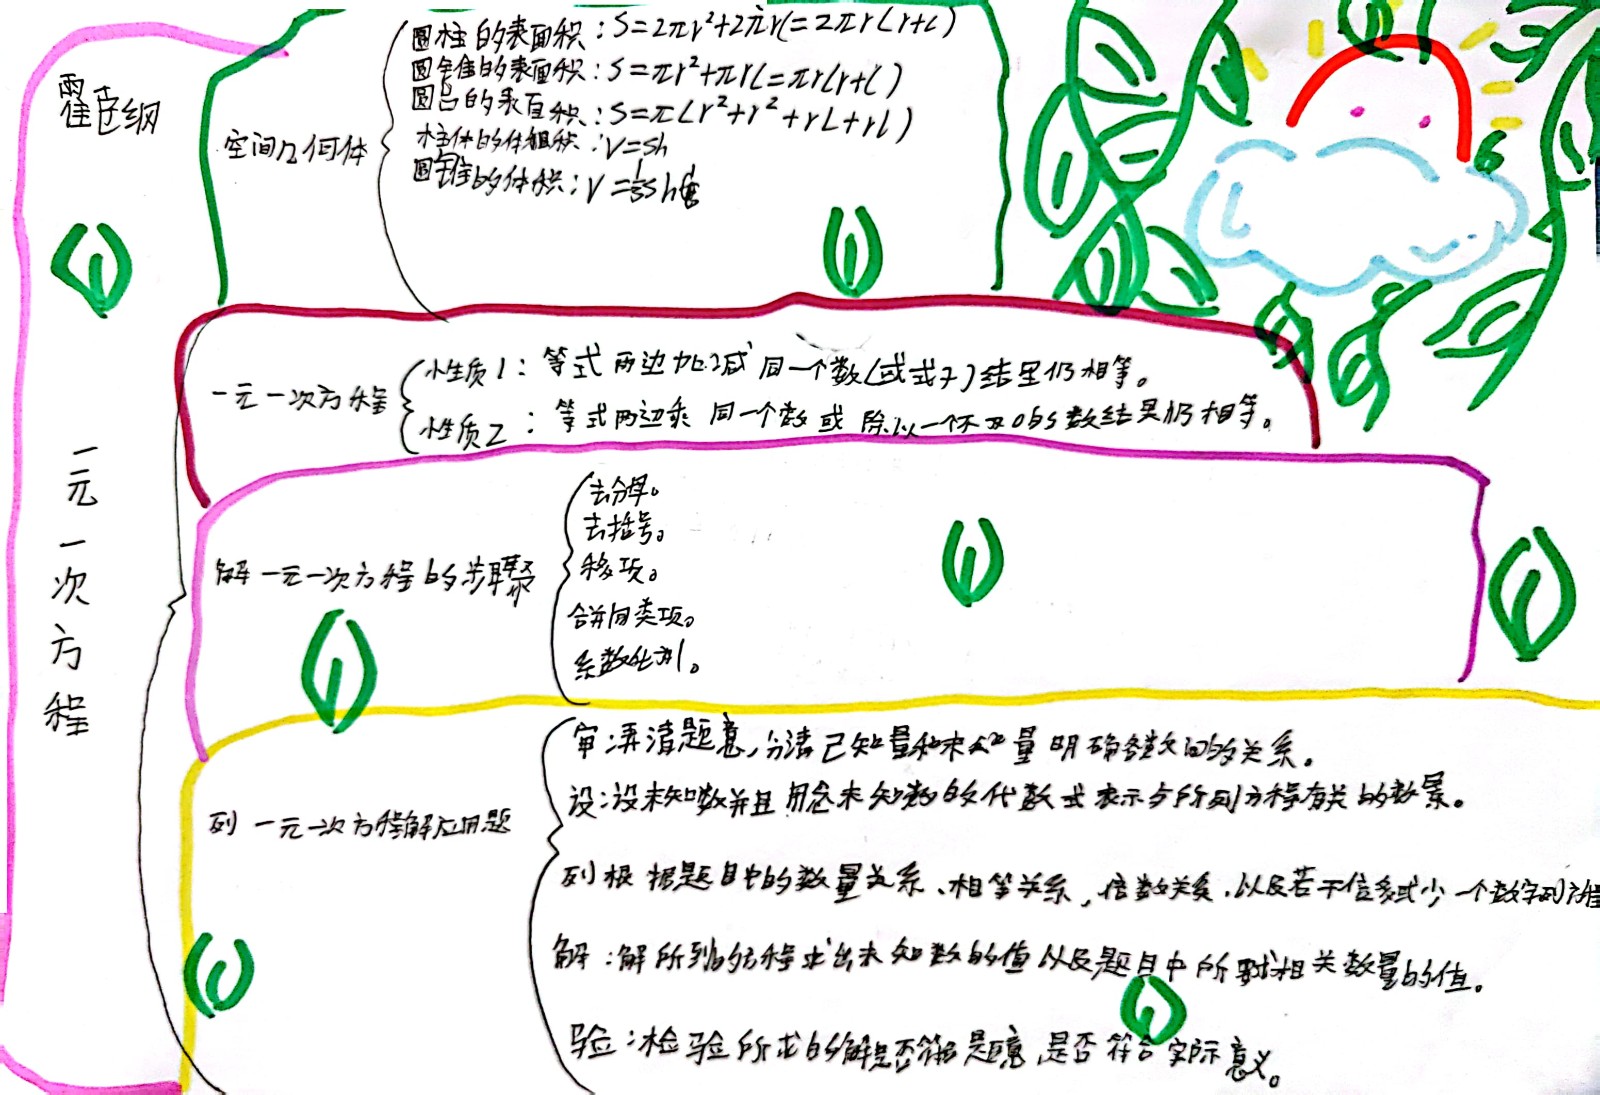 霍芭纲
一元一次方程
空间几何体
圆柱的表面积：S=2πr²+2πrl=2πr(r+l)
圆锥的表面积：S=πr²+πrl=πr(r+l)
圆台的表面积：S=π(r²+r²+rl+rl)
柱体的体积：V=Sh
圆锥的体积：V=⅓Sh
一元一次方程
性质1：等式两边加减同一个数(或式子)结果仍相等。
性质2：等式两边乘同一个数或除以一个不为0的数结果仍相等。
解一元一次方程的步骤
去分母。
去括号。
移项。
合并同类项。
系数化为1。
列一元一次方程解应用题
审：弄清题意,分清已知量和未知量明确各数间的关系。
设：设未知数并且用含未知数的代数式表示与所列方程有关的数量。
列根据题目中的数量关系、相等关系，倍数关系.以及若干倍多或少一个数字列方程
解：解所列的方程求出未知数的值以及题目中所求相关数量的值。
验：检验所求的解是否符合题意是否符合实际意义。